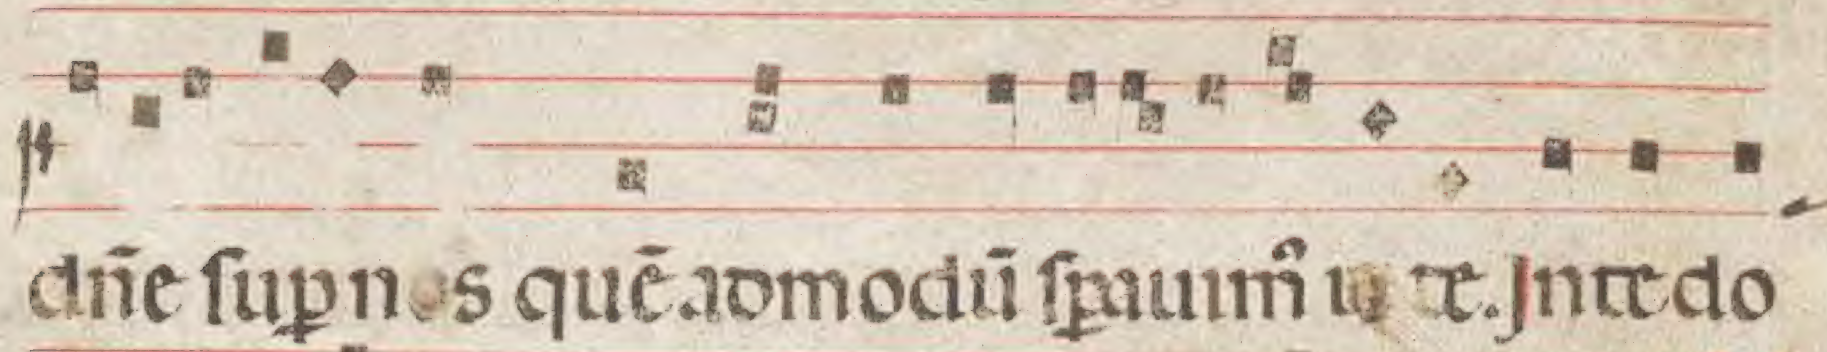 dn̄e sup nos quē admodū sperauim⁹ in te. In te do